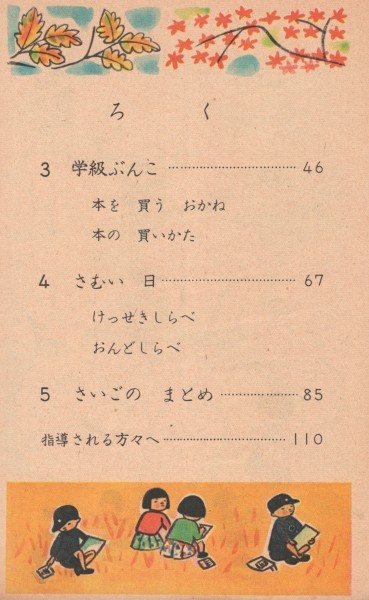 ろく
3 学級ぶんこ …………………… 46
本を 買う おかね
本の 買いかた
4 さむい 日 …………………… 67
けっせきしらべ
おんどしらべ
5 さいごの まとめ …………… 85
指導される方々へ …………………… 110